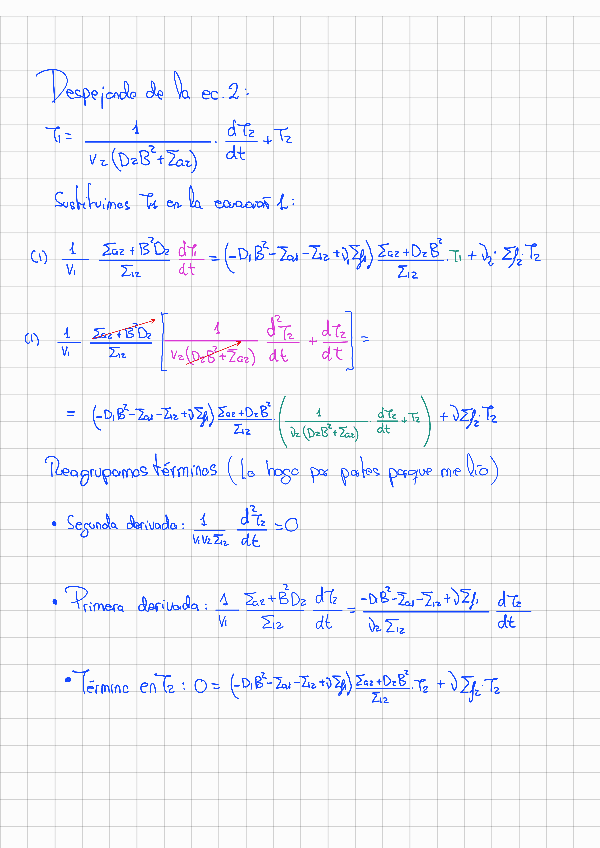 Despejando de la ec. 2:
T₁ = 1/(V₂(D₂B²+Σa₂)) · dT₂/dt + T₂
Sustituimos T₁ en la ecuación 1:
(1) 1/V₁ (Σa₂+B²D₂)/Σ₁₂ dT₁/dt = (-D₁B²-Σa₁-Σ₁₂+ν₁Σf₁) (Σa₂+D₂B²)/Σ₁₂ · T₁ + ν₂·Σf₂·T₂
(1) 1/V₁ (Σa₂+B²D₂)/Σ₁₂ [1/(V₂(D₂B²+Σa₂)) d²T₂/dt + dT₂/dt] =
= (-D₁B²-Σa₁-Σ₁₂+νΣf₁) (Σa₂+D₂B²)/Σ₁₂ · (1/(V₂(D₂B²+Σa₂)) · dT₂/dt + T₂) + νΣf₂·T₂
Reagrupamos términos (lo hago por partes porque me lío)
• Segunda derivada: 1/(V₁V₂Σ₁₂) d²T₂/dt = 0
• Primera derivada: 1/V₁ (Σa₂+B²D₂)/Σ₁₂ dT₂/dt = (-D₁B²-Σa₁-Σ₁₂+νΣf₁)/(V₂Σ₁₂) dT₂/dt
• Término en T₂: 0 = (-D₁B²-Σa₁-Σ₁₂+νΣf₁) (Σa₂+D₂B²)/Σ₁₂ · T₂ + νΣf₂·T₂